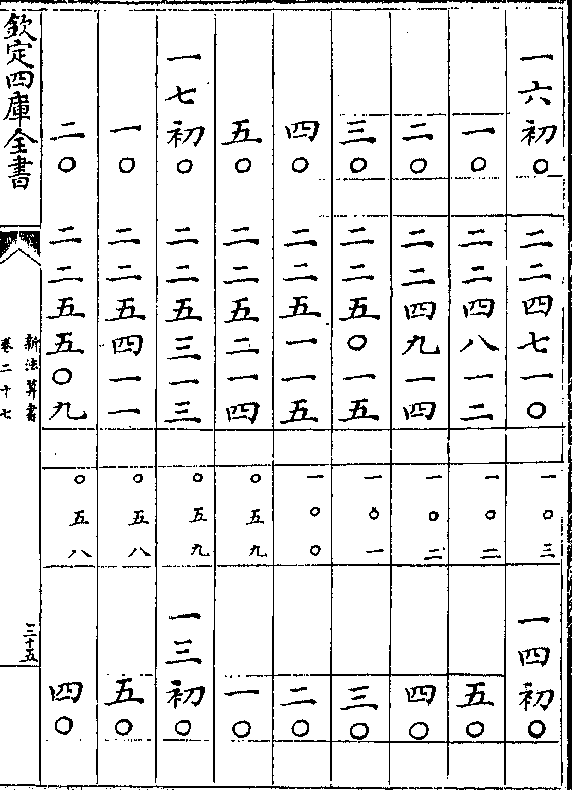 一六初〇 二二四七一〇 一〇三 一四初〇
一〇 二二四八一二 一〇二 五〇
二〇 二二四九一四 一〇二 四〇
三〇 二二五〇一五 一〇一 三〇
四〇 二二五一一五 一〇〇 二〇
五〇 二二五二一四 〇五九 一〇
一七初〇 二二五三一三 〇五九 一三初〇
一〇 二二五四一一 〇五八 五〇
二〇 二二五五〇九 〇五八 四〇
欽定四庫全書
新法算書
卷二十七
三十五